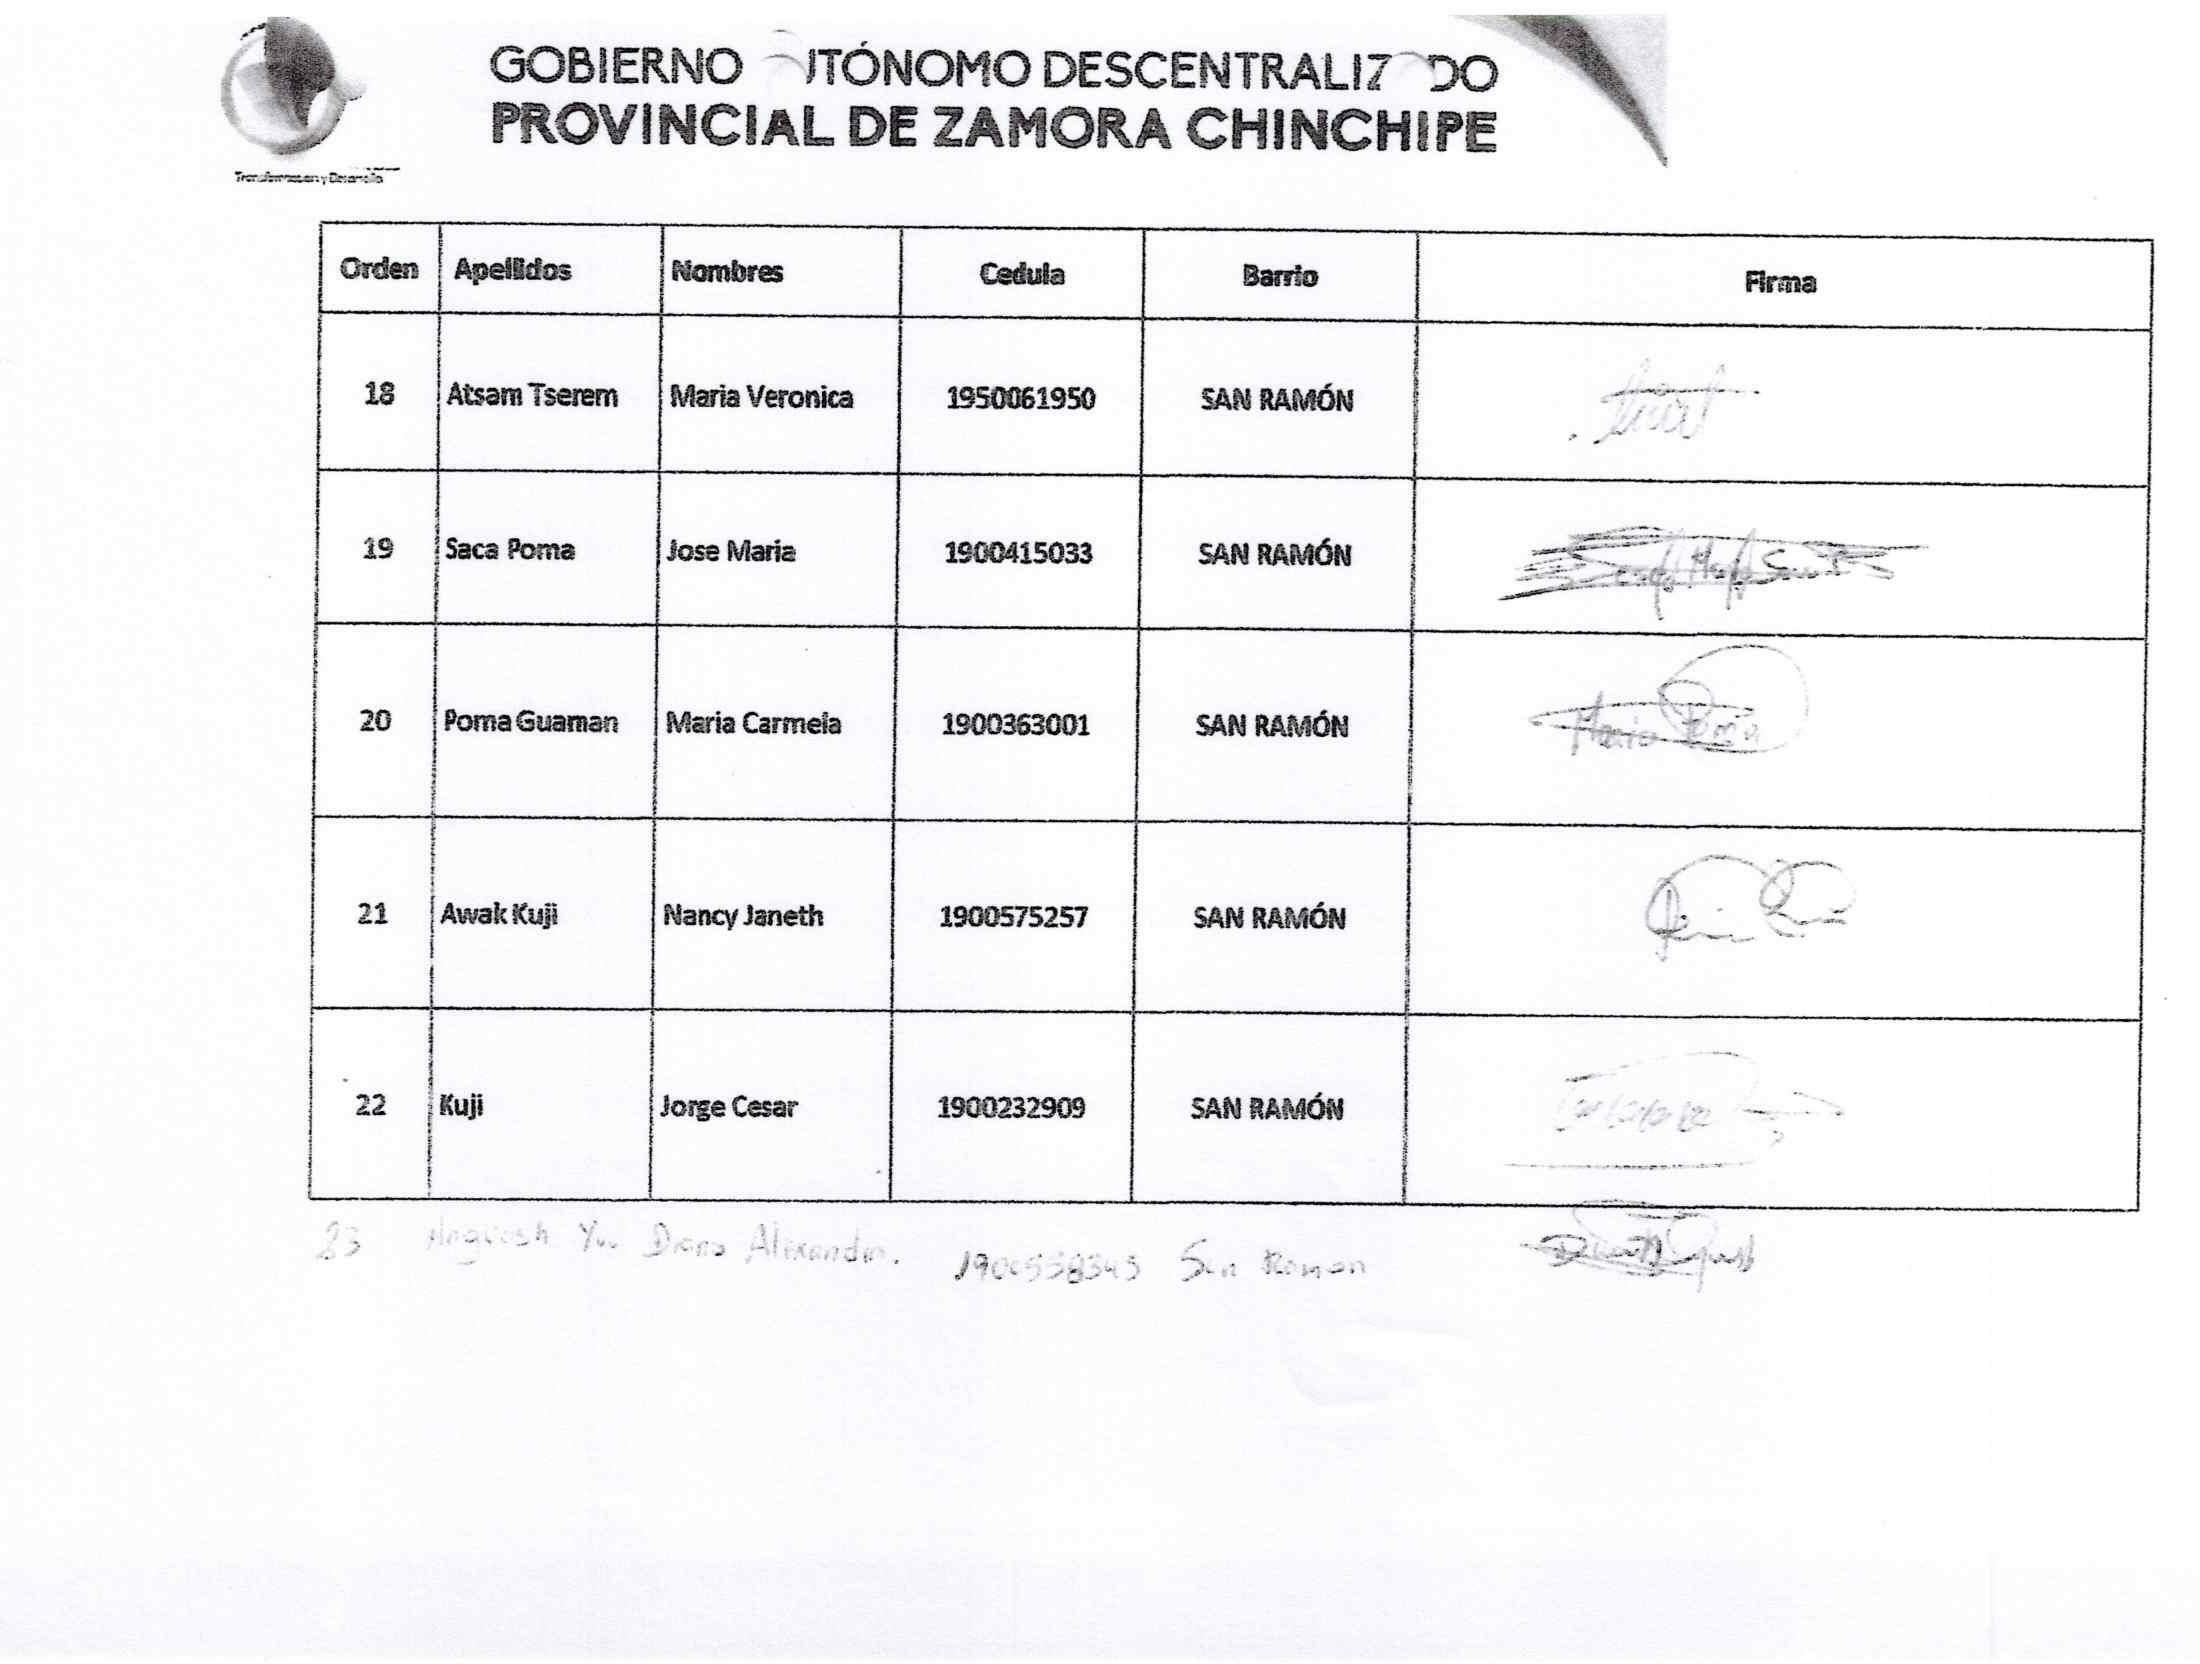 GOBIERNO AUTÓNOMO DESCENTRALIZADO
PROVINCIAL DE ZAMORA CHINCHIPE
Transformacion y Desarrollo
Orden Apellidos Nombres Cedula Barrio Firma
18 Atsam Tserem Maria Veronica 1950061950 SAN RAMÓN
19 Saca Poma Jose Maria 1900415033 SAN RAMÓN
20 Poma Guaman Maria Carmela 1900363001 SAN RAMÓN Maria Poma
21 Awak Kuji Nancy Janeth 1900575257 SAN RAMÓN
22 Kuji Jorge Cesar 1900232909 SAN RAMÓN
23 Diana Alexandra. San Ramon